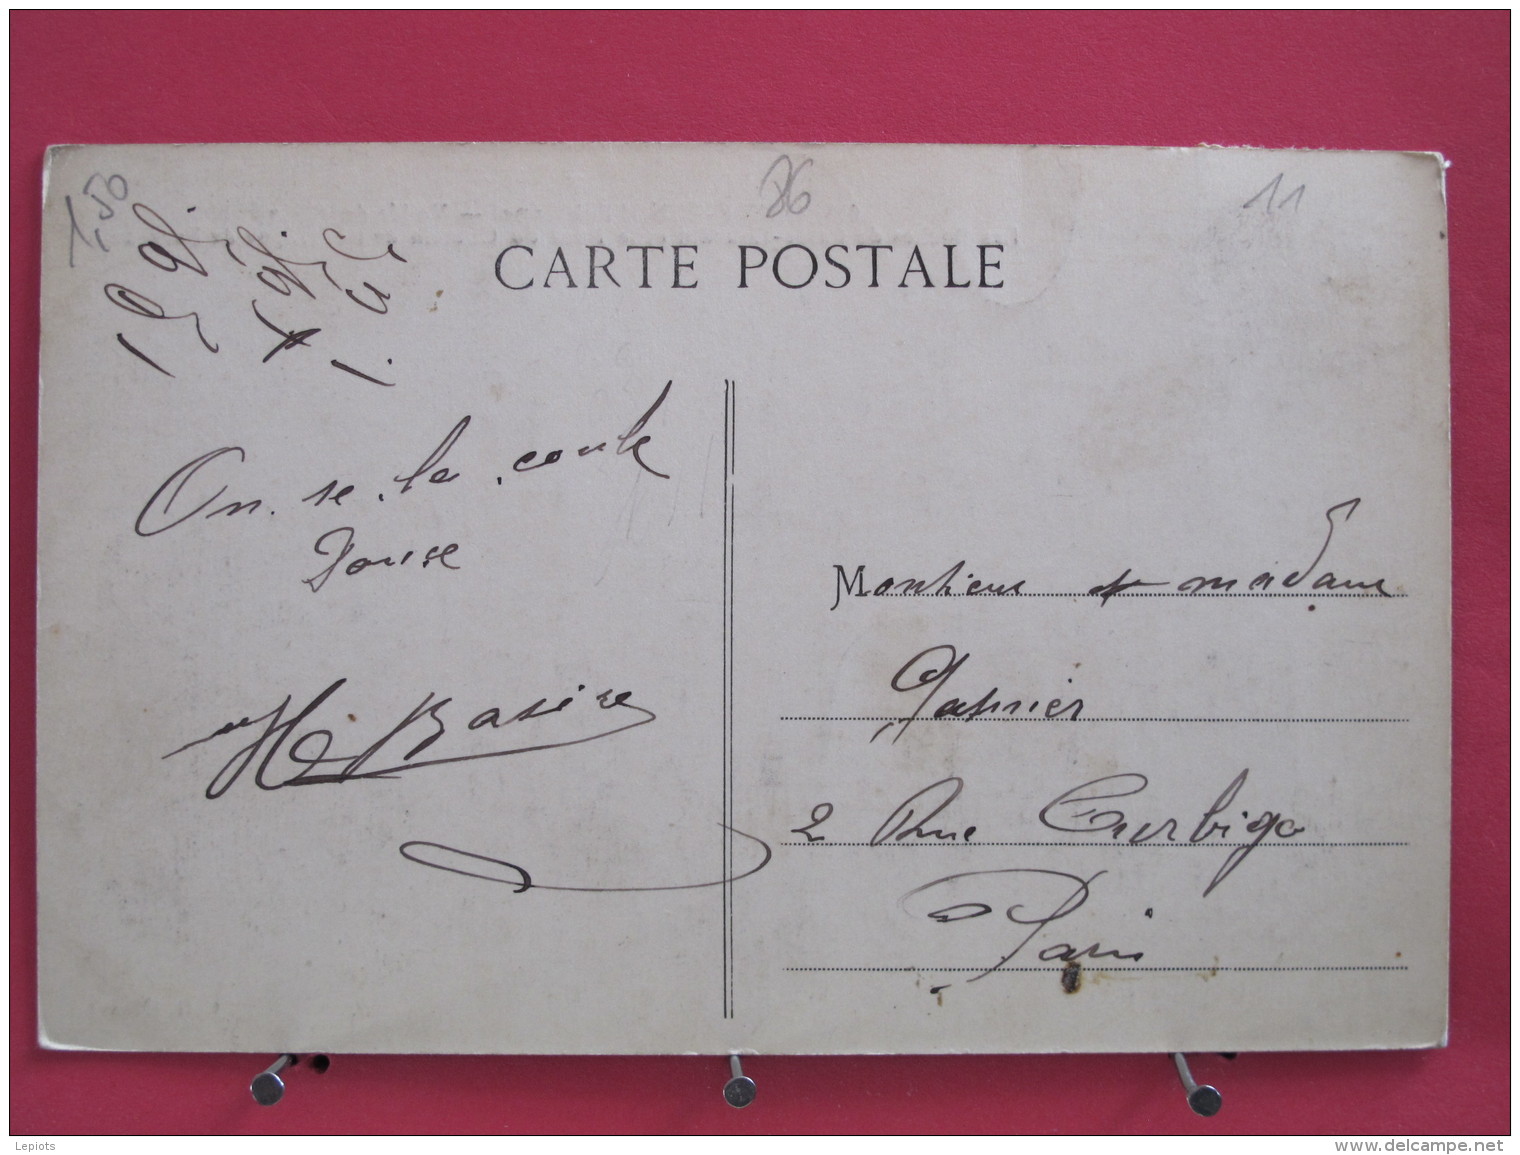 1,50
86
11
CARTE POSTALE
On se la coule
Douse
H. Basire
Monsieur et madame
2 Rue Turbigo
Paris
Lepiots
www.delcampe.net